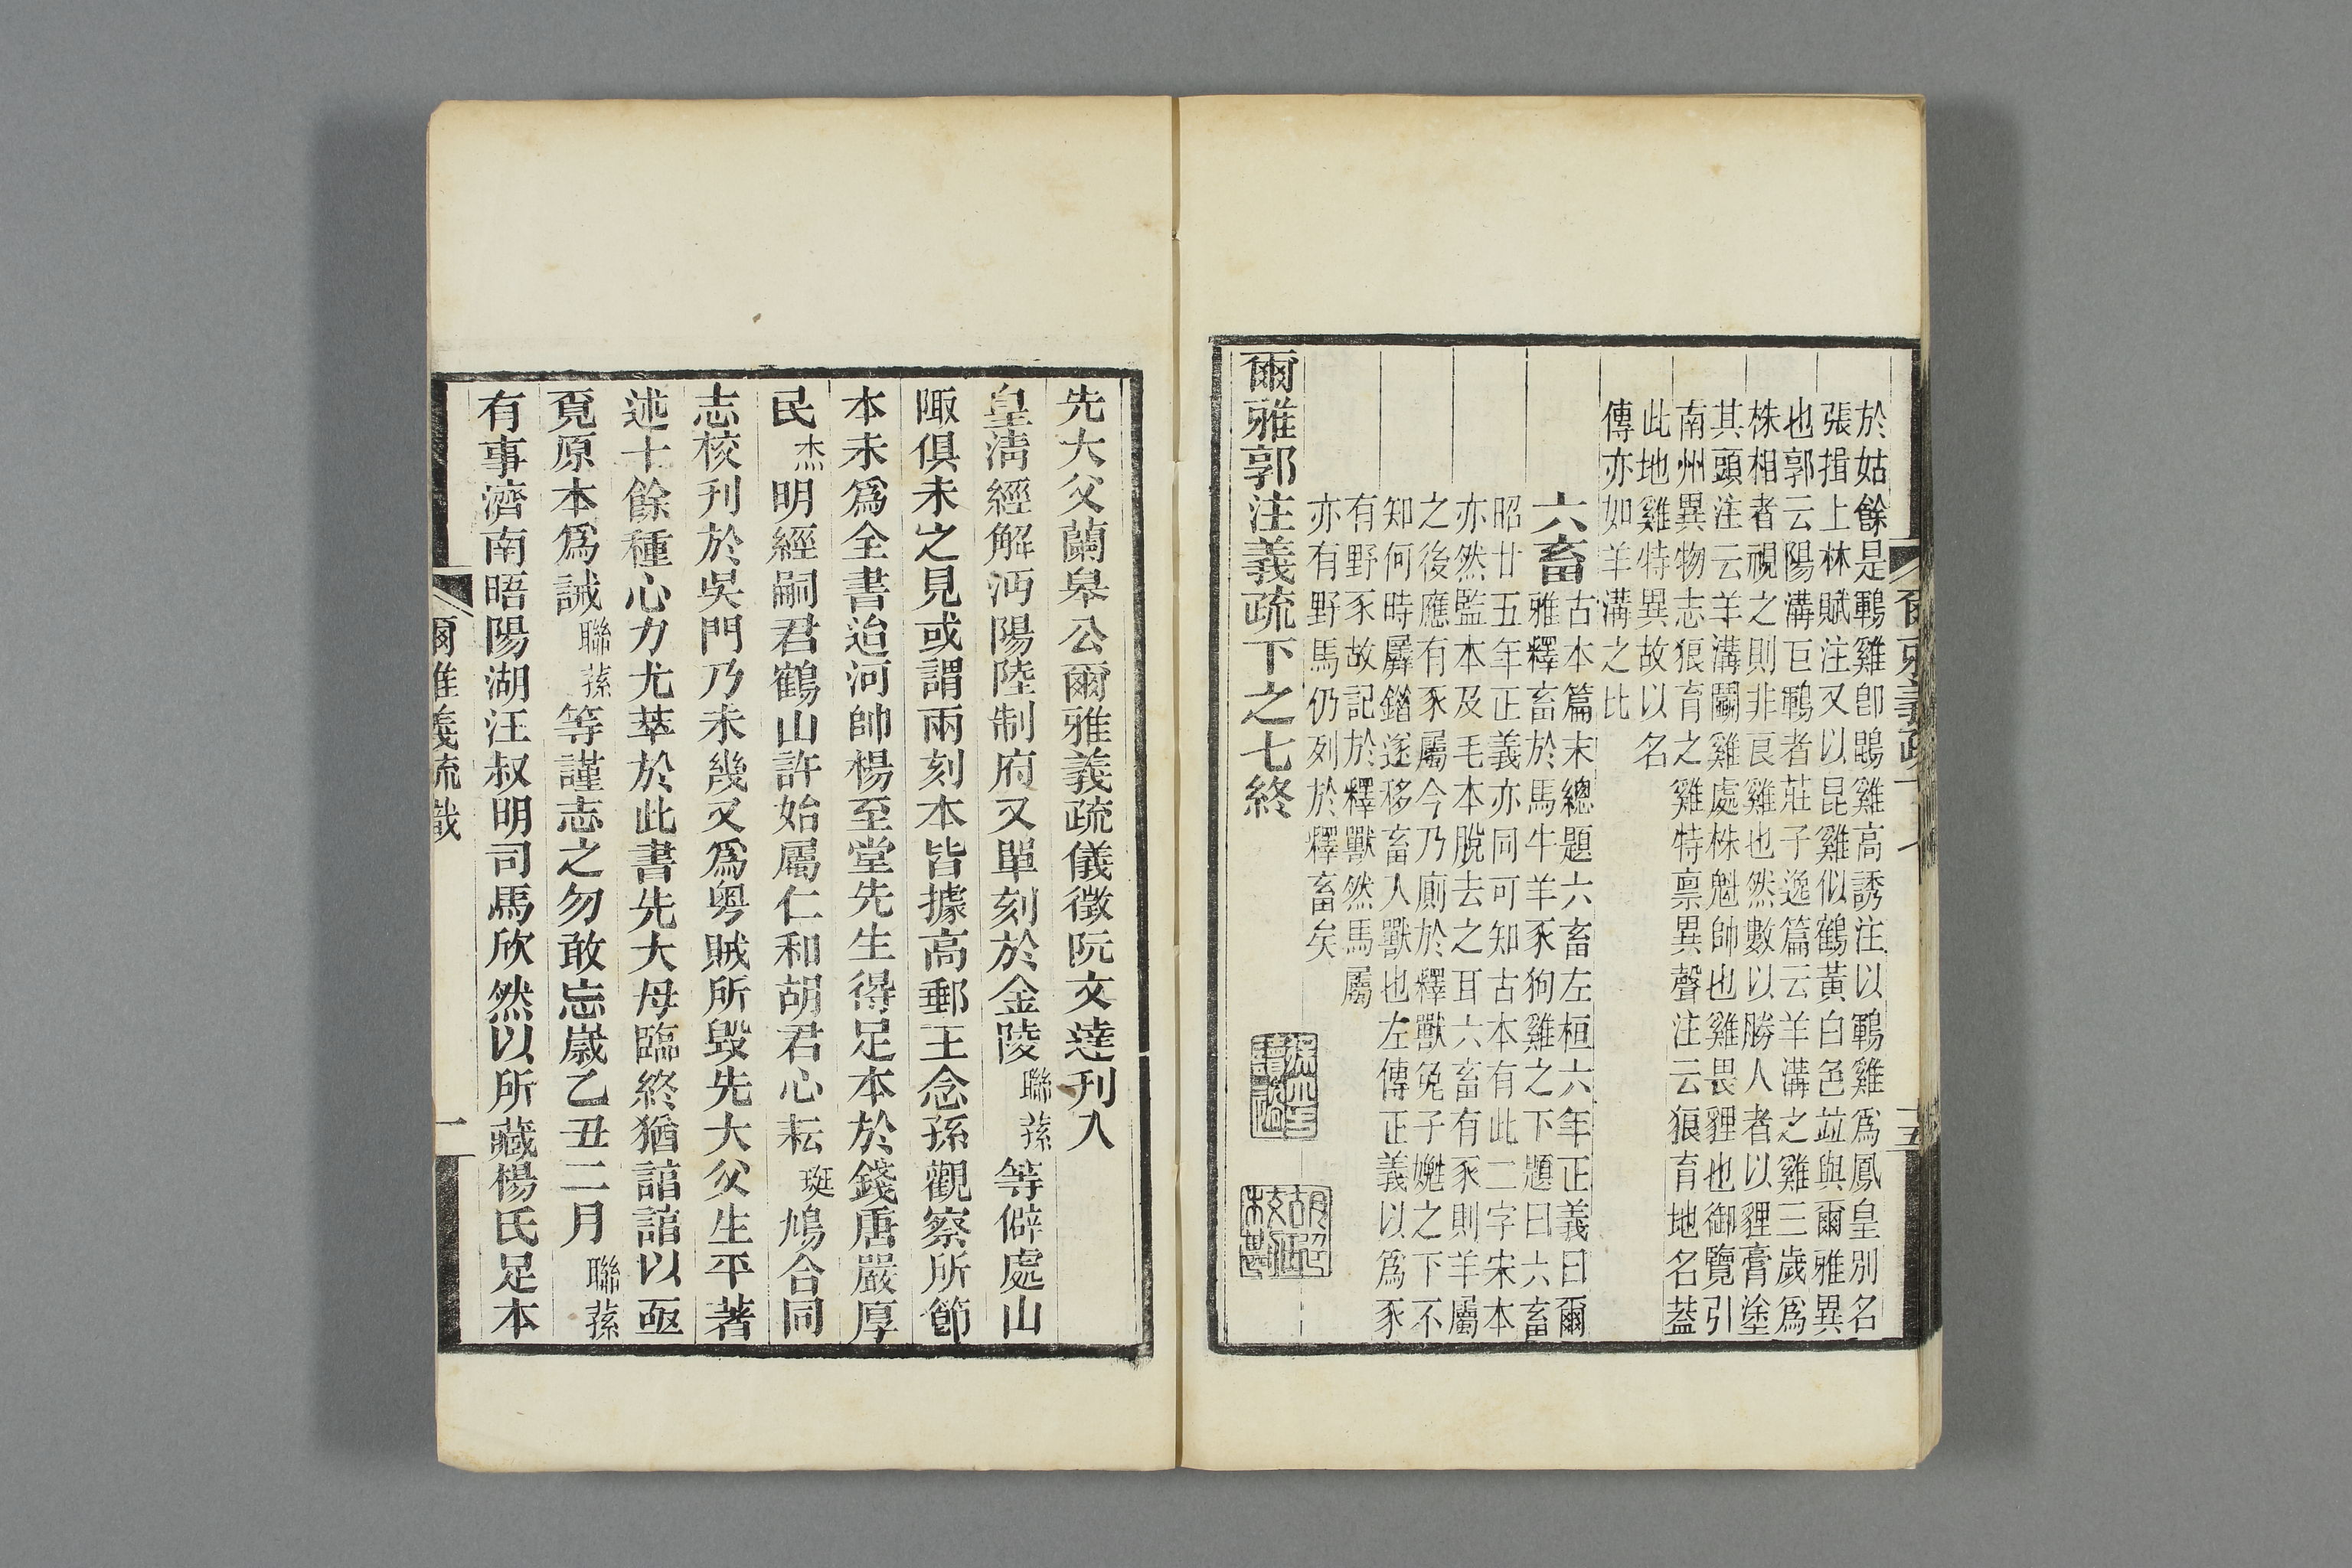 於姑餘是鶤雞卽鵾雞高誘注以鶤雞爲鳳皇別名
張揖上林賦注又以昆雞似鶴黃白色竝與爾雅異
也郭云陽溝巨鶤者莊子逸篇云羊溝之雞三歲爲
株相者視之則非良雞也然數以勝人者以貍膏塗
其頭注云羊溝鬭雞處株魁帥也雞畏貍也御覽引
南州異物志狼育之雞特稟異聲注云狼育地名葢
此地雞特異故以名
傳亦如羊溝之比
六畜
古本篇末總題六畜左桓六年正義曰爾
雅釋畜於馬牛羊豕狗雞之下題曰六畜
昭廿五年正義亦同可知古本有此二字宋本
亦然監本及毛本脫去之耳六畜有豕則羊屬
之後應有豕屬今乃廁於釋獸兔子嬎之下不
知何時羼錯遂移畜入獸也左傳正義以爲豕
有野豕故記於釋獸然馬屬
亦有野馬仍列於釋畜矣
爾雅郭注義疏下之七終
先大父蘭皋公爾雅義疏儀徵阮文達刊入
皇淸經解沔陽陸制府又單刻於金陵聯蓀等僻處山
陬俱未之見或謂兩刻本皆據高郵王念孫觀察所節
本未爲全書迨河帥楊至堂先生得足本於錢唐嚴厚
民杰明經嗣君鶴山許始屬仁和胡君心耘珽鳩合同
志校刊於吳門乃未幾又爲粤賊所毀先大父生平著
述十餘種心力尤萃於此書先大母臨終猶諳諳以亟
覓原本爲誡聯蓀等謹志之勿敢忘嵗乙丑二月聯蓀
有事濟南晤陽湖汪叔明司馬欣然以所藏楊氏足本
爾雅義疏 一